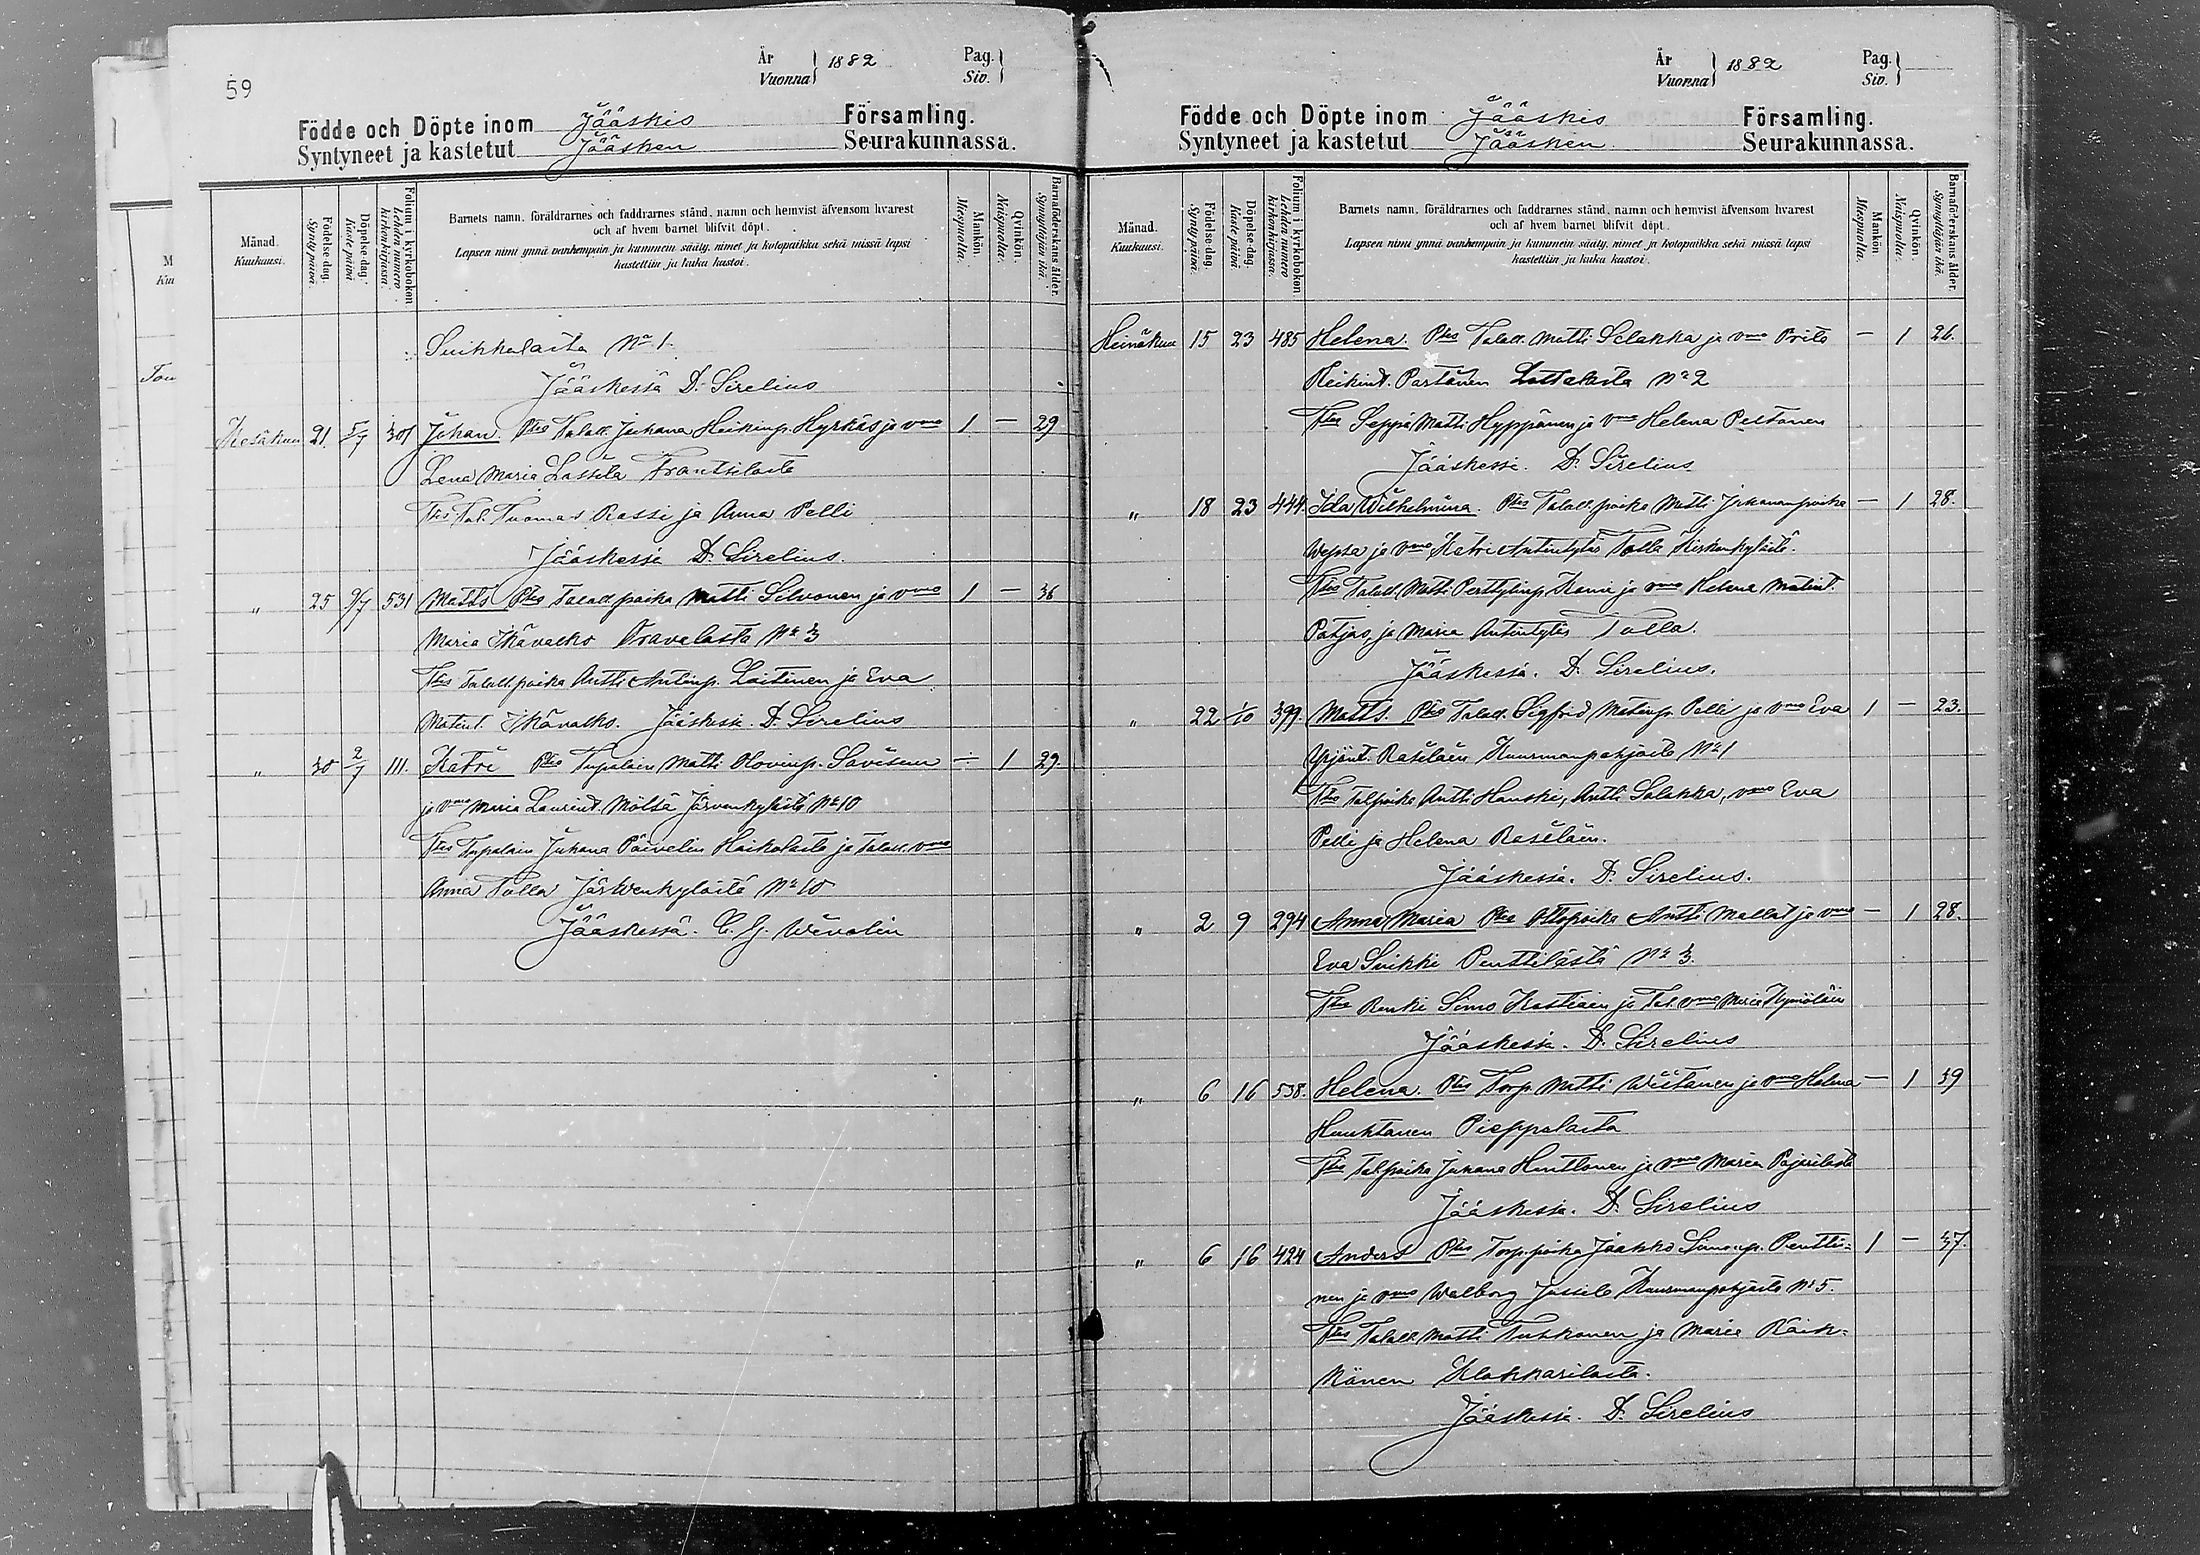 59
År
Vuonna } 1882 Pag.
Siv. }
Födde och Döpte inom Jääskis Församling.
Syntyneet ja kastetut Jääsken Seurakunnassa.
Månad.
Kuukausi.
Födelse-dag.
Syntypäivä.
Döpelse-dag.
Kastepäivä
Folium i kyrkoboken
Lehden numero
kirkonkirjassa.
Barnets namn, föräldrarnes och faddrarnes stånd, namn och hemvist äfvensom hvarest
och af hvem barnet blifvit döpt.
Lapsen nimi ynnä vanhempain ja kummein sääty, nimet ja kotopaikka sekä missä lapsi
kastettiin ja kuka kastoi.
Mankön.
Miespuolia.
Qvinkön.
Naispuolia.
Barnaföderskans ålder.
Synnyttäjän ikä.
Suikkalasta No 1.
Jääskessä D. Sirelius
Kesäkuu 21 5/7 301 Johan. Ptus Talall. Juhana Heikinp. Hyrkäs ja vmo 1 — 29
Lena Maria Lassila Frantsilasta
Ttes Tal. Tuomas Rossi ja Anna Pelli
Jääskessä D. Sirelius.
„ 25 9/7 531 Matts Ptus Talall. poika Matti Silvonen ja vmo 1 — 36
Maria Ikävalko Pravalasta No 3
Ttes Talall. poika Antti Antinp. Laitinen ja Eva
Matint. Ikävalko. Jääskessä D. Sirelius
„ 30 2/7 111. Katri Ptus Tupalain Matti Olovinp. Savisuu — 1 29.
ja vmo Maria Laurint. Mölsä Järvenkylästä No 10
Ttes Tupalain Juhana Päivelin Haikolasta ja Talall. vmo
Anna Talla Järwenkylästä No 10
Jääskessä. C. G. Wivolin
År
Vuonna } 1882 Pag.
Siv. }
Födde och Döpte inom Jääskis Församling.
Syntyneet ja kastetut Jääsken Seurakunnassa.
Månad.
Kuukausi.
Födelse-dag.
Syntypäivä.
Döpelse-dag.
Kastepäivä
Folium i kyrkoboken
Lehden numero
kirkonkirjassa.
Barnets namn, föräldrarnes och faddrarnes stånd, namn och hemvist äfvensom hvarest
och af hvem barnet blifvit döpt.
Lapsen nimi ynnä vanhempain ja kummein sääty, nimet ja kotopaikka sekä missä lapsi
kastettiin ja kuka kastoi.
Mankön
Miespuolia.
Qvinkön.
Naispuolia.
Barnaföderskans ålder.
Synnyttäjän ikä.
Heinäkuu 15 23 485 Helena. Ptus Talall. Matti Selakka ja vmo Prita — 1 26.
Heikint. Partanen Lottolasta No 2
Ttes Seppä Matti Hyppänen ja vmo Helena Peltonen
Jääskessä. D. Sirelius
„ 18 23 444. Ida Wilhelmina. Ptus Talall. poika Matti Juhananpoika — 1 28.
Wepsa ja vmo Katri Antintytär Talla Kirkonkylästä.
Ttes Talall. Matti Perttylinp. Kanni ja vmo Helena Matint.
Pohjas, ja Maria Antintytär Talla.
Jääskessä. D. Sirelius.
„ 22 1/10 399. Matts. Ptus Talall. Sigfrid Matinp. Pelli ja vmo Eva 1 — 23.
Yrjönt. Rasiläin Kuurmanpohjasta No 1
Ttes Talpoika Antti Hanski, Antti Salakka, vmo Eva
Pelli ja Helena Rasiläin.
Jääskessä. D. Sirelius.
„ 2 9 294 Anna Maria Ptus Ottopoika Antti Mallat ja vmo — 1 28.
Eva Suikki Penttilästä No 3.
Ttes Renki Simo Kostiain ja Tal. vmo Maria Kymäläin
Jääskessä. D. Sirelius
„ 6 16 538. Helena. Ptus Torp. Matti Wiitanen ja vmo Helena — 1 39
Huuhtanen Pieppolasta
Ttes Tal.poika Juhana Huttonen ja vmo Maria Pajarilasta
Jääskessä. D. Sirelius
„ 6 16 424 Anders Ptus Torp. poika Jaakko Simonp. Pentti- 1 — 37.
nen ja vmo Walborg Jussila Kuurmanpohjasta No 5.
Ttes Talall. Matti Tuskanen ja Maria Räik-
könen Klakkarilasta.
Jääskessä. D. Sirelius